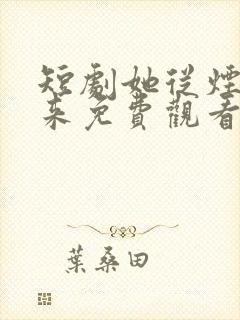 短劇她從煙
來免費觀看
葉桑田